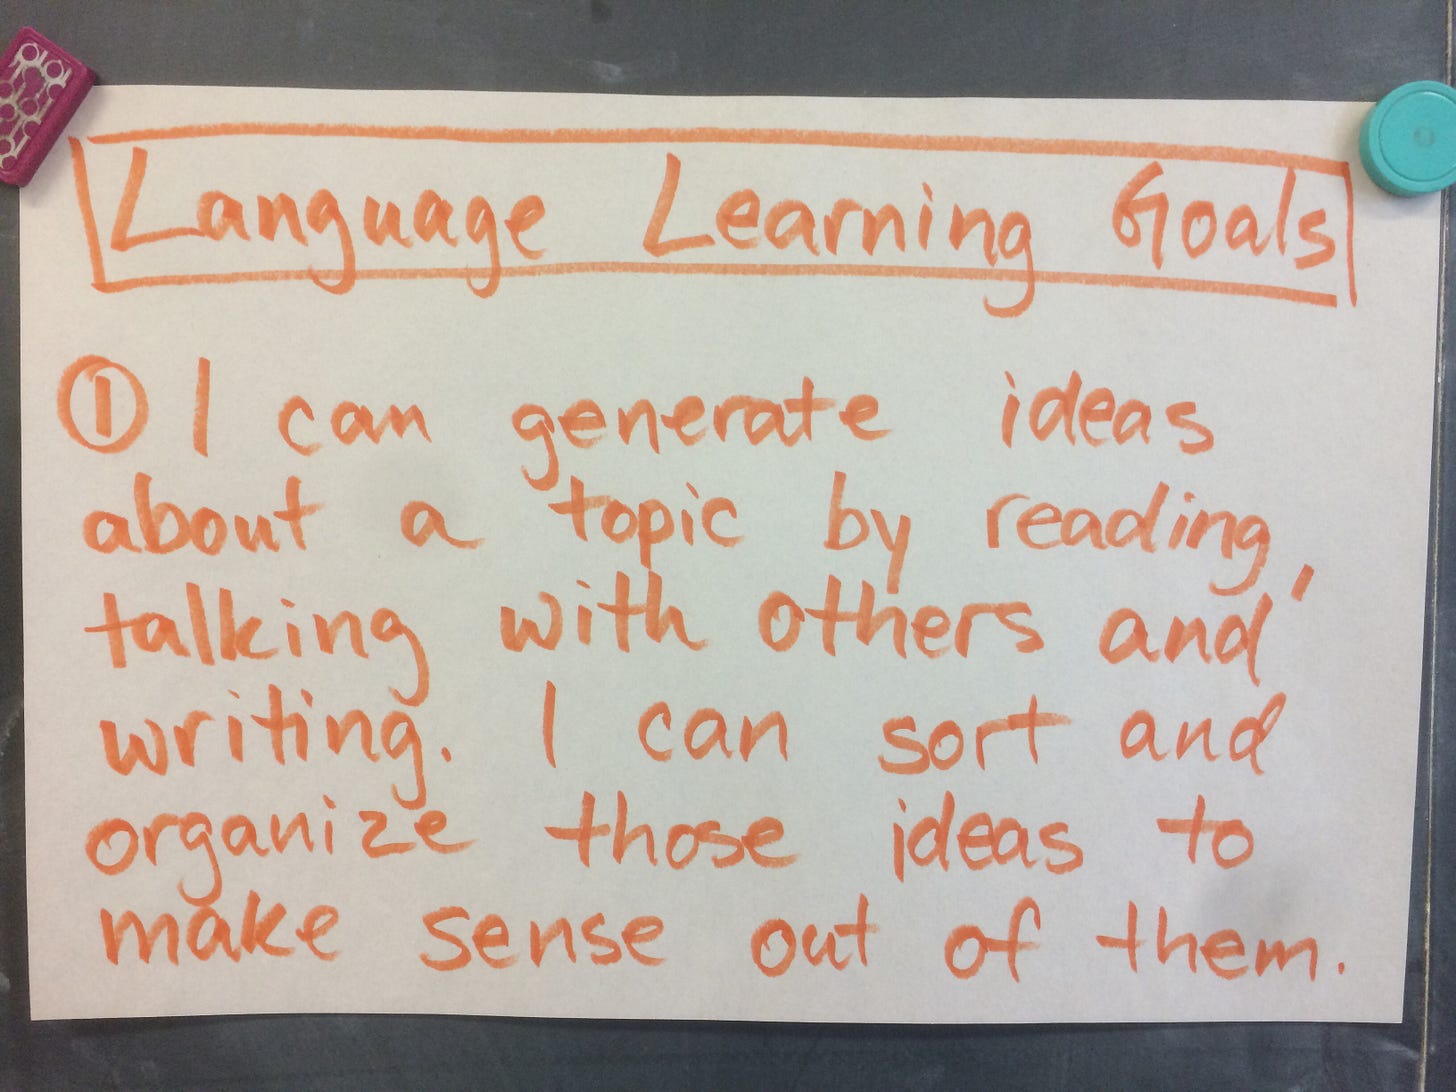 Language Learning Goals
① I can generate ideas
about a topic by reading,
talking with others and
writing. I can sort and
organize those ideas to
make sense out of them.